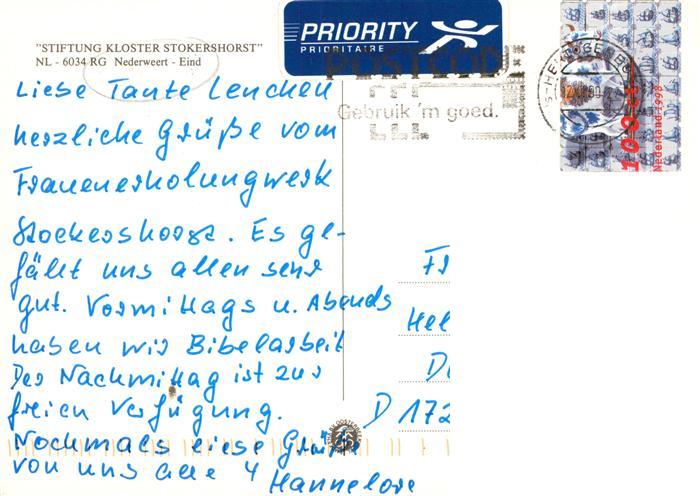 "STIFTUNG KLOSTER STOKERSHORST"
NL - 6034 RG Nederweert - Eind
PRIORITY
PRIORITAIRE
POSTCODE
Gebruik 'm goed.
100 ct
Nederland 1998
Liebe Tante Lenchen
herzliche Grüße vom
Frauenerholungwerk
Stockershorst. Es ge-
fällt uns allen sehr
gut. Vormittags u. Abends
haben wir Bibelarbeit
Der Nachmittag ist zur
freien Verfügung.
Nochmals liebe Grüße
von uns alle 4 Hannelore
Fr
Hel
D 172